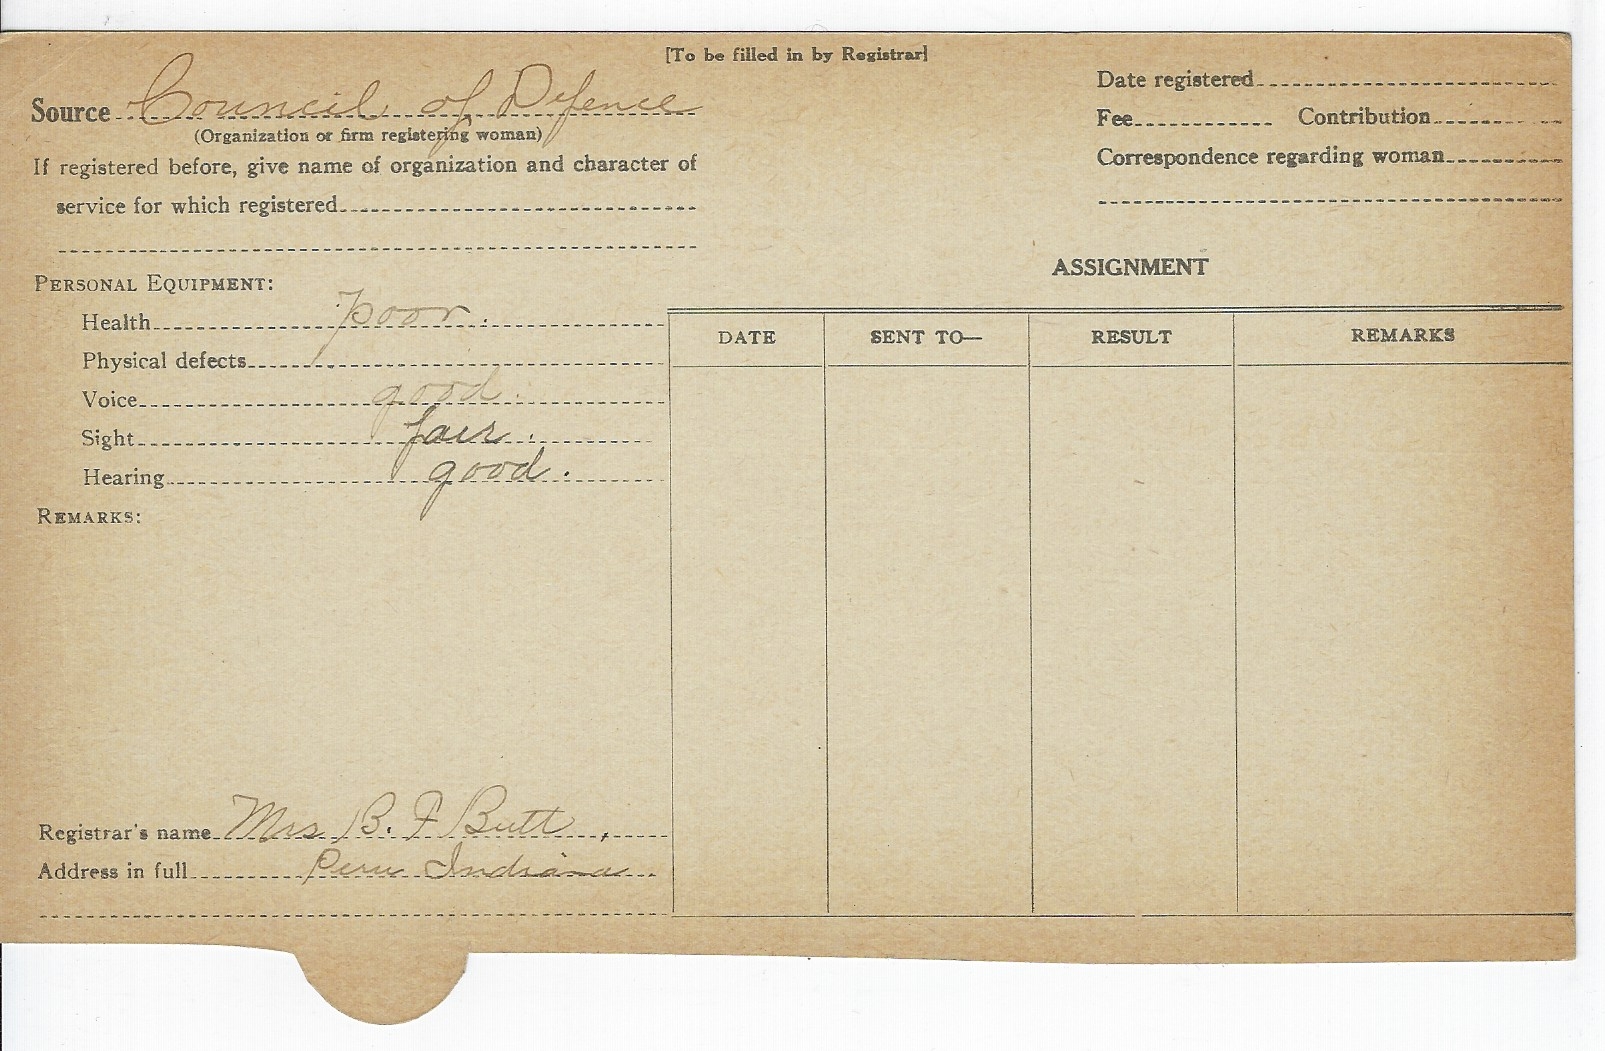 [To be filled in by Registrar]
Source Council of Defence
(Organization or firm registering woman)
If registered before, give name of organization and character of
service for which registered
Personal Equipment:
Health poor.
Physical defects
Voice good.
Sight fair.
Hearing good.
Remarks:
Registrar's name Mrs B. F Butt.
Address in full Peru Indiana.
Date registered
Fee Contribution
Correspondence regarding woman
ASSIGNMENT
DATE SENT TO— RESULT REMARKS